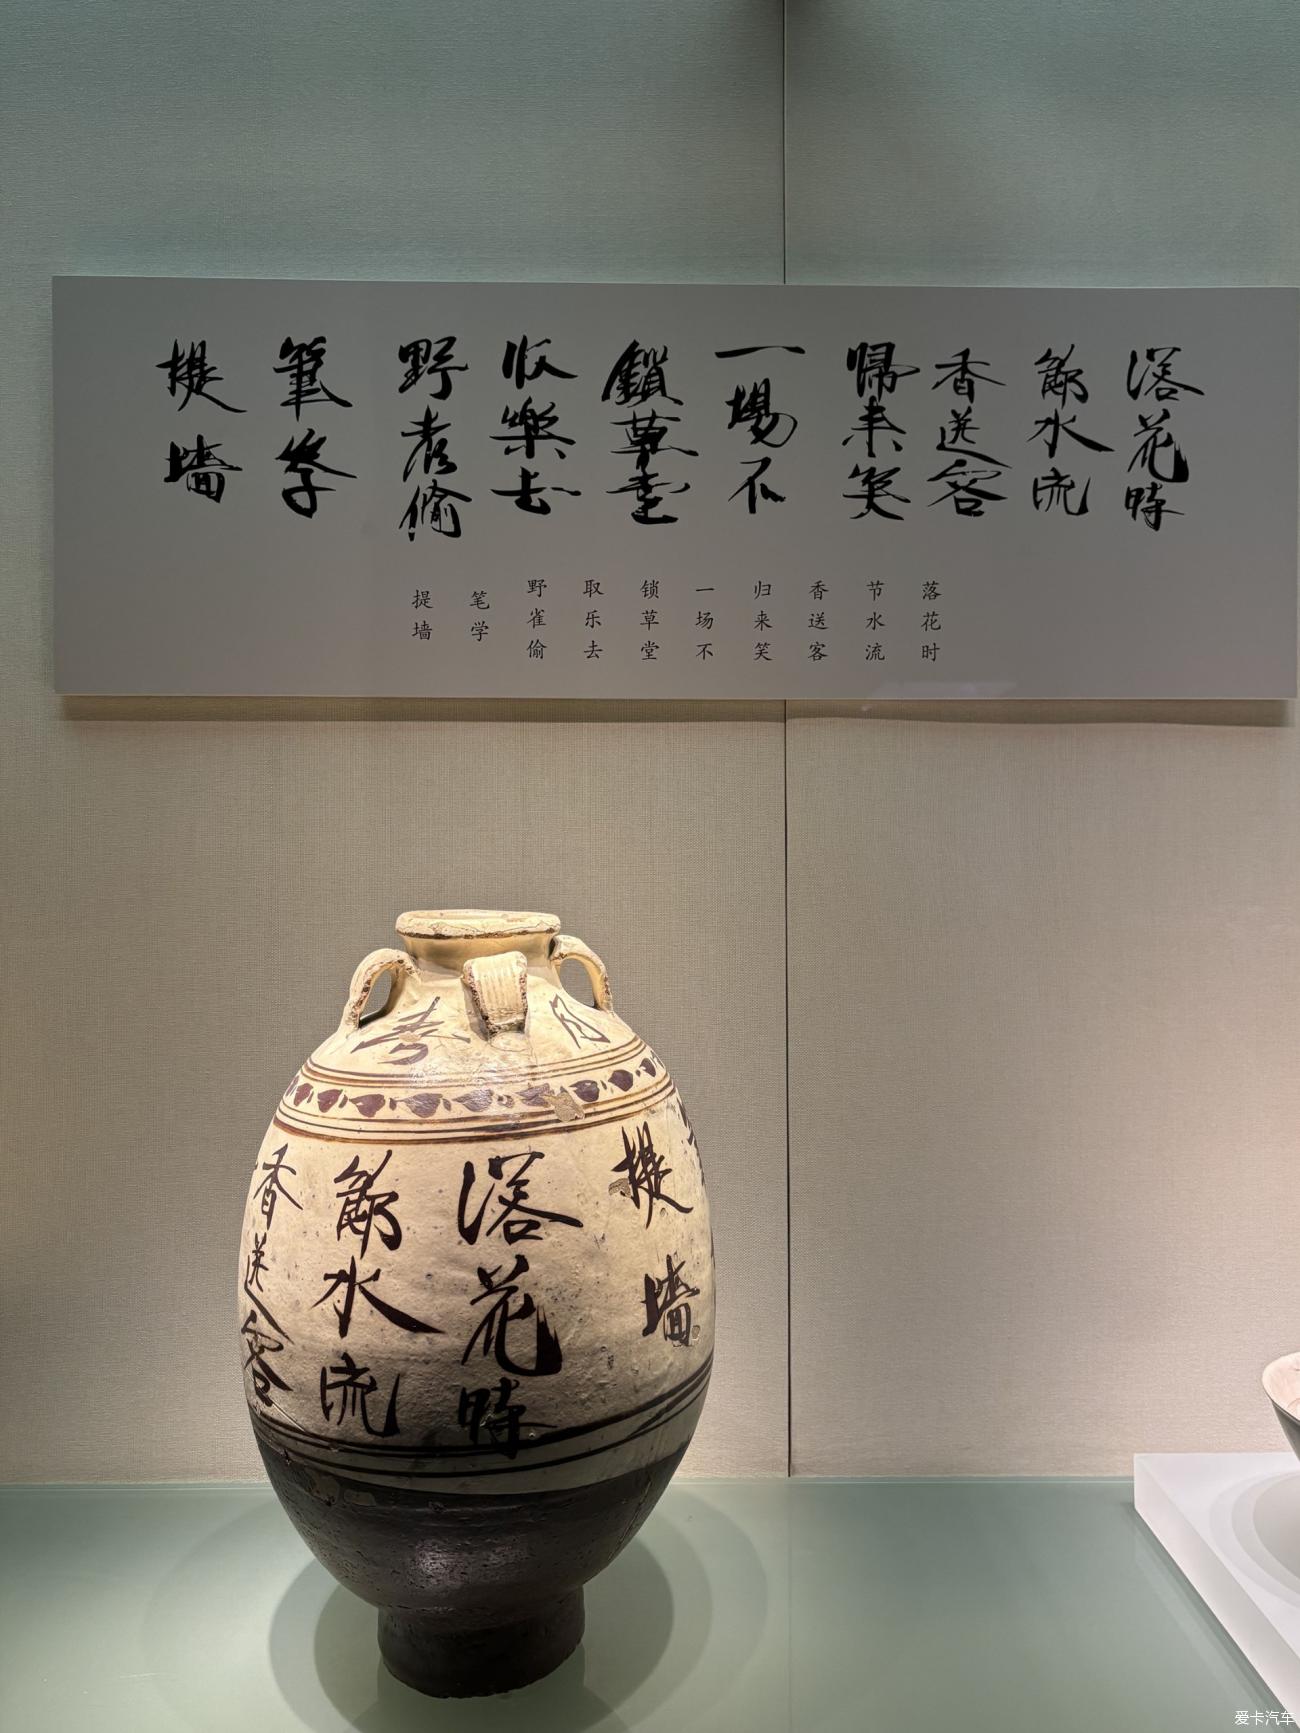 落花時
節水流
香送客
歸来笑
一場不
鎖草堂
收樂去
野雀偷
筆学
提墙
落花时
节水流
香送客
归来笑
一场不
锁草堂
取乐去
野雀偷
笔学
提墙
春
月
提墙
落花時
節水流
香送客
爱卡汽车